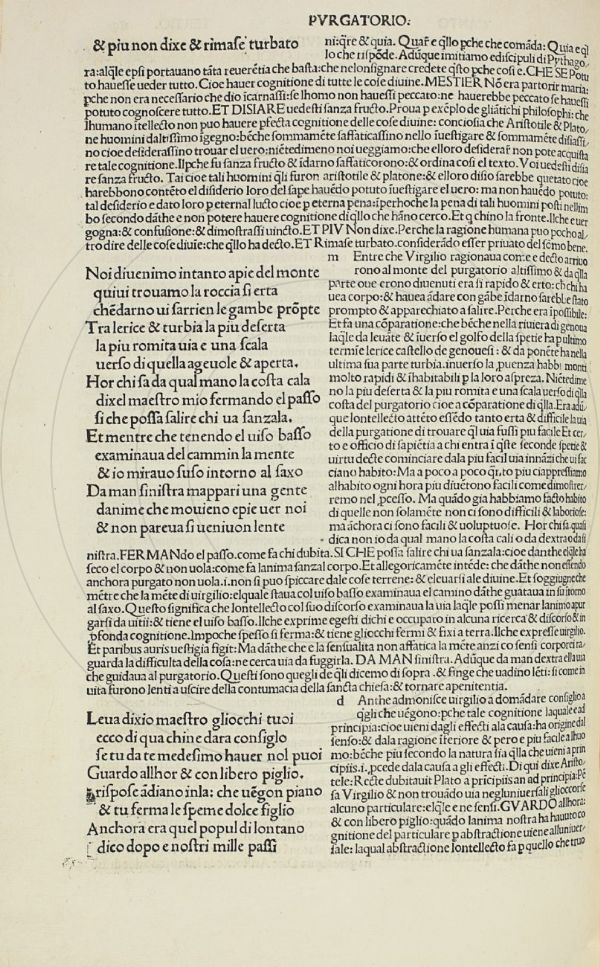 PVRGATORIO:
& piu non dixe & rimase turbato
ni: q̃re & quia. Quar̃ e q̃llo pche che comãda: Quia e ql
lo che rispõde. Adũque imitiamo ediscipuli di Pythago
ra: alqle epsi portauano tãta reuerẽtia che basta: che nelonsignare credete q̃sto pche cosi e. CHE SE Potu
to hauesse ueder tutto. Cioe hauer cognitione di tutte le cose diuine. MESTIER NÕ era partorir maria:
pche non era necessario che dio icarnassi: se lhomo non hauessi peccato: ne hauerebbe peccato se hauessi
potuto cognoscere tutto. ET DISIARE uedesti sanza fructo. Proua p exẽplo de gliãtichi philosophi: che
lhumano itellecto non puo hauere pfecta cognitione delle cose diuine: conciosia che Aristotile & Plato,
ne huomini daltissimo igegno: bẽche sommamẽte saffaticassino nello iuestigare & sommamẽte disiassi,
no cioe desiderassino trouar el uero: niẽtedimeno noi ueggiamo: che elloro desiderar̃ non pote acquista
re tale cognitione. Ilpche fu sanza fructo & idarno saffaticorono: & ordina cosi el texto. Voi uedesti disia
re sanza fructo. Tai cioe tali huomini q̃li furon aristotile & platone: & elloro disio sarebbe quetato cioe
harebbono contẽto el disiderio loro del sape hauẽdo potuto iuestigare el uero: ma non hauẽdo potuto:
tal desiderio e dato loro p eternal lucto cioe p eterna pena: iperhoche la pena di tali huomini posti nellim
bo secondo dãthe e non potere hauere cognitione di qllo che hãno cerco. Et q chino la fronte. Ilche e uer
gogna: & confusione: & dimostrassi uincto. ET PIV Non dixe. Perche la ragione humana puo pocho al,
tro dire delle cose diuie: che q̃llo ha decto. ET Rimase turbato. considerãdo esser priuato del sẽmo bene.
Noi diuenimo intanto apie del monte
quiui trouamo la roccia si erta
chẽdarno ui sarrien le gambe prõpte
Tra lerice & turbia la piu deserta
la piu romita uia e una scala
uerso di quella ageuole & aperta.
Hor chi sa da qual mano la costa cala
dixel maestro mio fermando el passo
si che possa salire chi ua sanzala.
Et mentre che tenendo el uiso basso
examinaua del cammin la mente
& io mirauo suso intorno al saxo
Da man sinistra mappari una gente
danime che mouieno epie uer noi
& non pareua si ueniuon lente
m Entre che Virgilio ragionaua con: e e decto arriuo
rono al monte del purgatorio altissimo & da qlla
parte oue erono diuenuti era si rapido & erto: ch chi ha
uea corpo: & hauea ãdare con gãbe ĩdarno sarebbe stato
prompto & apparechiato a salire. Perche era ĩpossibile:
Et fa una cõparatione: che bẽche nella riuiera di genoua
laqle da leuãte & iuerso el golfo della spetie ha pultimo
termĩe lerice castello de genouesi: & da ponẽte ha nella
ultima sua parte turbia. inuerso la puenza habbi monti
molto rapidi & ĩhabitabili p la loro aspreza. Niẽtedime
no la piu deserta & la piu romita e una scala uerso di qlla
costa del purgatorio cioe a cõparatione di qlla. Era adũ
que lontellecto attẽto essẽdo tanto erta & difficile la uia
della purgatione di trouare ql uia fussi piu facile Et cer,
to e officio di sapiẽtia a chi entra ĩ q̃ste seconde spetie &
uirtu decte cominciare dala piu facil uia innãzi che ui fac
ciano habito: Ma a poco a poco qr̃, to piu ciappressiamo
alhabito ogni hora piu diuẽtono facili come dimostrer,
remo nel pcesso. Ma quãdo gia habbiamo facto habito
di quelle non solamẽte non ci sono difficili & laboriose:
ma ãchora ci sono facili & uoluptuose. Hor chi sa. quasi
dica non io da qual mano la costa cali o da dextra o da si
nistra. FERMANdo el passo. come fa chi dubita. SI CHE possa salire chi ua sanzala: cioe dãnthe elqle ha
seco el corpo & non uola: come fa lanima sanzal corpo. Et allegoricamẽte intẽde: che dãthe non essẽdo
anchora purgato non uola. i. non si puo spiccare dale cose terrene: & eleuarsi ale diuine. Et soggiugne che
mẽtre che la mẽte di uirgilio: elquale staua col uiso basso examinaua el camino dãthe guataua in su itorno
al saxo. Questo significa che lontellecto col suo discorso examinaua la uia laqle possi menar lanimo apur
garsi da uitii: & tiene el uiso basso. Ilche exprime egesti dichi e occupato in alcuna ricerca & discorso & in
pfonda cognitione. Impoche spesso si ferma: & tiene gliocchi fermi & fixi a terra. Ilche expresse uirgilio.
Et paribus auris uestigia figit: Ma dãthe che e la sensualita non affatica la mẽte anzi co sensi corporei ra
guarda la difficulta della cosa: ne cerca uia da fuggirla. DA MAN sinistra. Adũque da man dextra ella uia
che guidaua al purgatorio. Questi sono quegli de qli dicemo di sopra. & finge che uadino lẽti: si come in
uita furono lenti a uscire della contumacia della sancta chiesa: & tornare apenitentia.
Leua dixio maestro gliocchi tuoi
ecco di qua chi ne dara consiglo
se tu da te medesimo hauer nol puoi
Guardo allhor & con libero piglio.
rispose adiano inla: che uẽgon piano
& tu ferma le speme dolce figlio
Anchora era quel popul di lontano
dico dopo e nostri mille passi
d Anthe admonisce uirgilio a domãdare consiglio a
q̃gli che uẽgono: pche tale cognitione laquale e ad
principia: cioe uieni dagli effecti ala causa: ha origine dal
senso: & dala ragione iferiore & pero e piu facile a lhuo
mo: bẽche piu secondo la natura sia qlla che uieni a prin
cipiis. i. pcede dala causa a gli effecti. Di qui dixe Aristo,
tele: Recte dubitauit Plato a prĩcipiis an ad principia: Pẽ
sa Virgilio & non trouãdo uia negluniuersali gliocchorse
alcuno particulare: elqle e ne sensi. GVARDO allhora:
& con libero piglio: quãdo lanima nostra ha hauuto co
gnitione del particulare p abstractione uiene alluniuer,
sale: laqual abstractione lontellecto fa p quello che truo